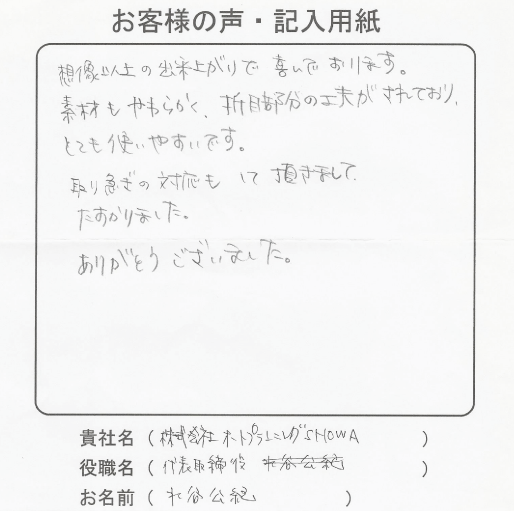 お客様の声・記入用紙
想像以上の出来上がりで喜んでおります。
素材もやわらかく、折目部分の工夫がされており、
とても使いやすいです。
取り急ぎの対応も して頂きまして
たすかりました。
ありがとうございました。
貴社名(株式会社 ホープラニングSHOWA)
役職名(代表取締役)
お名前(谷公紀)